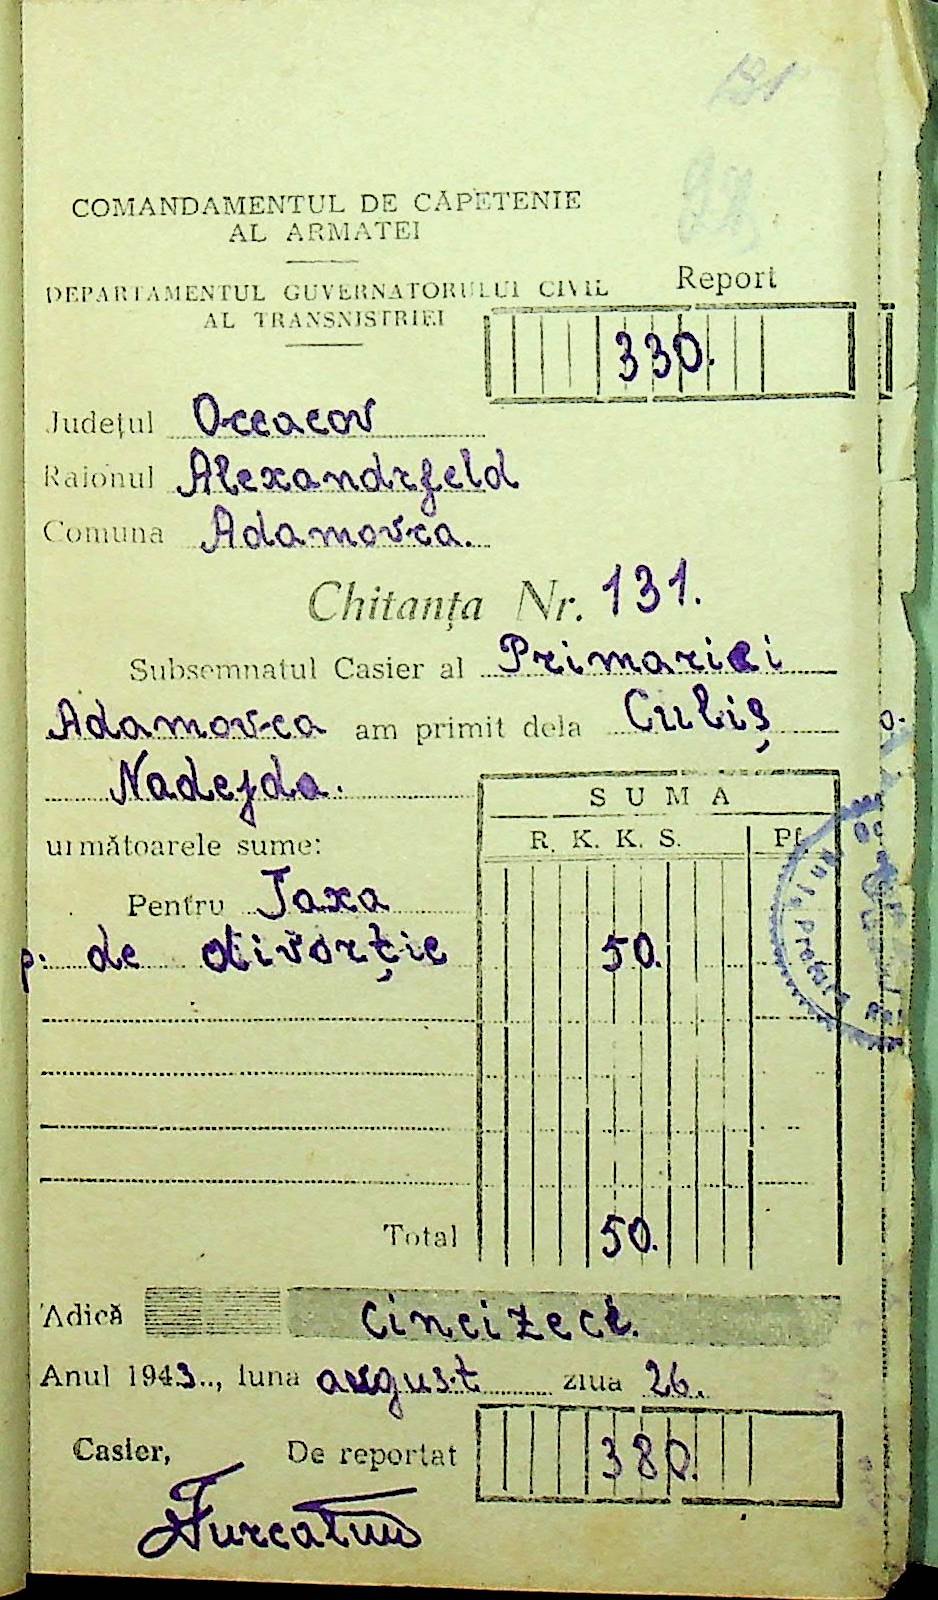 131
COMANDAMENTUL DE CĂPETENIE
AL ARMATEI
DEPARTAMENTUL GUVERNATORULUI CIVIL
AL TRANSNISTRIEI
Report
330.
Județul Oceacov
Raionul Alexandrfeld
Comuna Adamovca.
Chitanța Nr. 131.
Subsemnatul Casier al Primariei
Adamovca am primit dela Culiș
Nadejda.
SUMA
R. K. K. S. Pf.
următoarele sume:
Pentru Taxa
p. de divorție 50.
Total 50.
Adică cincizeci.
Anul 1943.., luna august ziua 26.
Casier, De reportat 380.